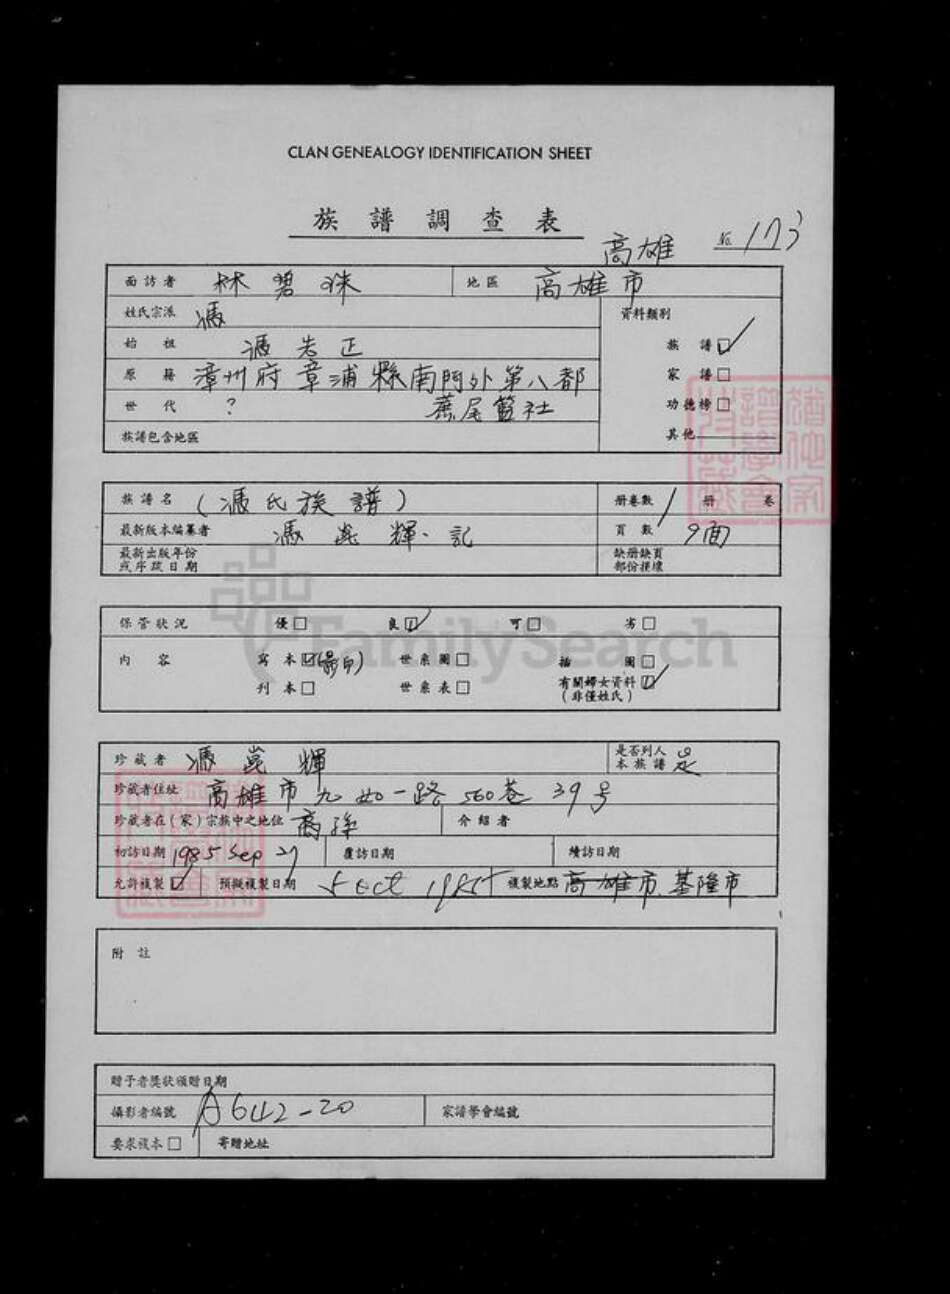 CLAN GENEALOGY IDENTIFICATION SHEET
族譜調查表
高雄 No. 173
面訪者 林碧珠 地區 高雄市
姓氏宗派 馮 資料類別
始祖 馮先正 族譜☑
原籍 漳州府章浦縣南門外第八都 家譜□
世代 ? 蔗尾籃社 功德榜□
族譜包含地區 其他
族譜名 (馮氏族譜) 冊卷數 1 冊 卷
最新版本編纂者 馮崑輝、記 頁數 9面
最新出版年份 缺冊缺頁
或序跋日期 部份損壞
保管狀況 優□ 良☑ 可□ 劣□
內容 寫本☑(影印) 世系圖□ 插圖□
刊本□ 世系表□ 有關婦女資料☑
(非僅姓氏)
珍藏者 馮崑輝 是否列入
本族譜 是
珍藏者住址 高雄市九如一路560巷39号
珍藏者在(家)宗族中之地位 裔孫 介紹者
初訪日期 1985 Sep 27 覆訪日期 續訪日期
允許複製☑ 預擬複製日期 5 Oct 1985 複製地點 高雄市 基隆市
附註
贈予者獎狀頒贈日期
攝影者編號 A642-20 家譜學會編號
要求複本□ 寄贈地址
FamilySearch